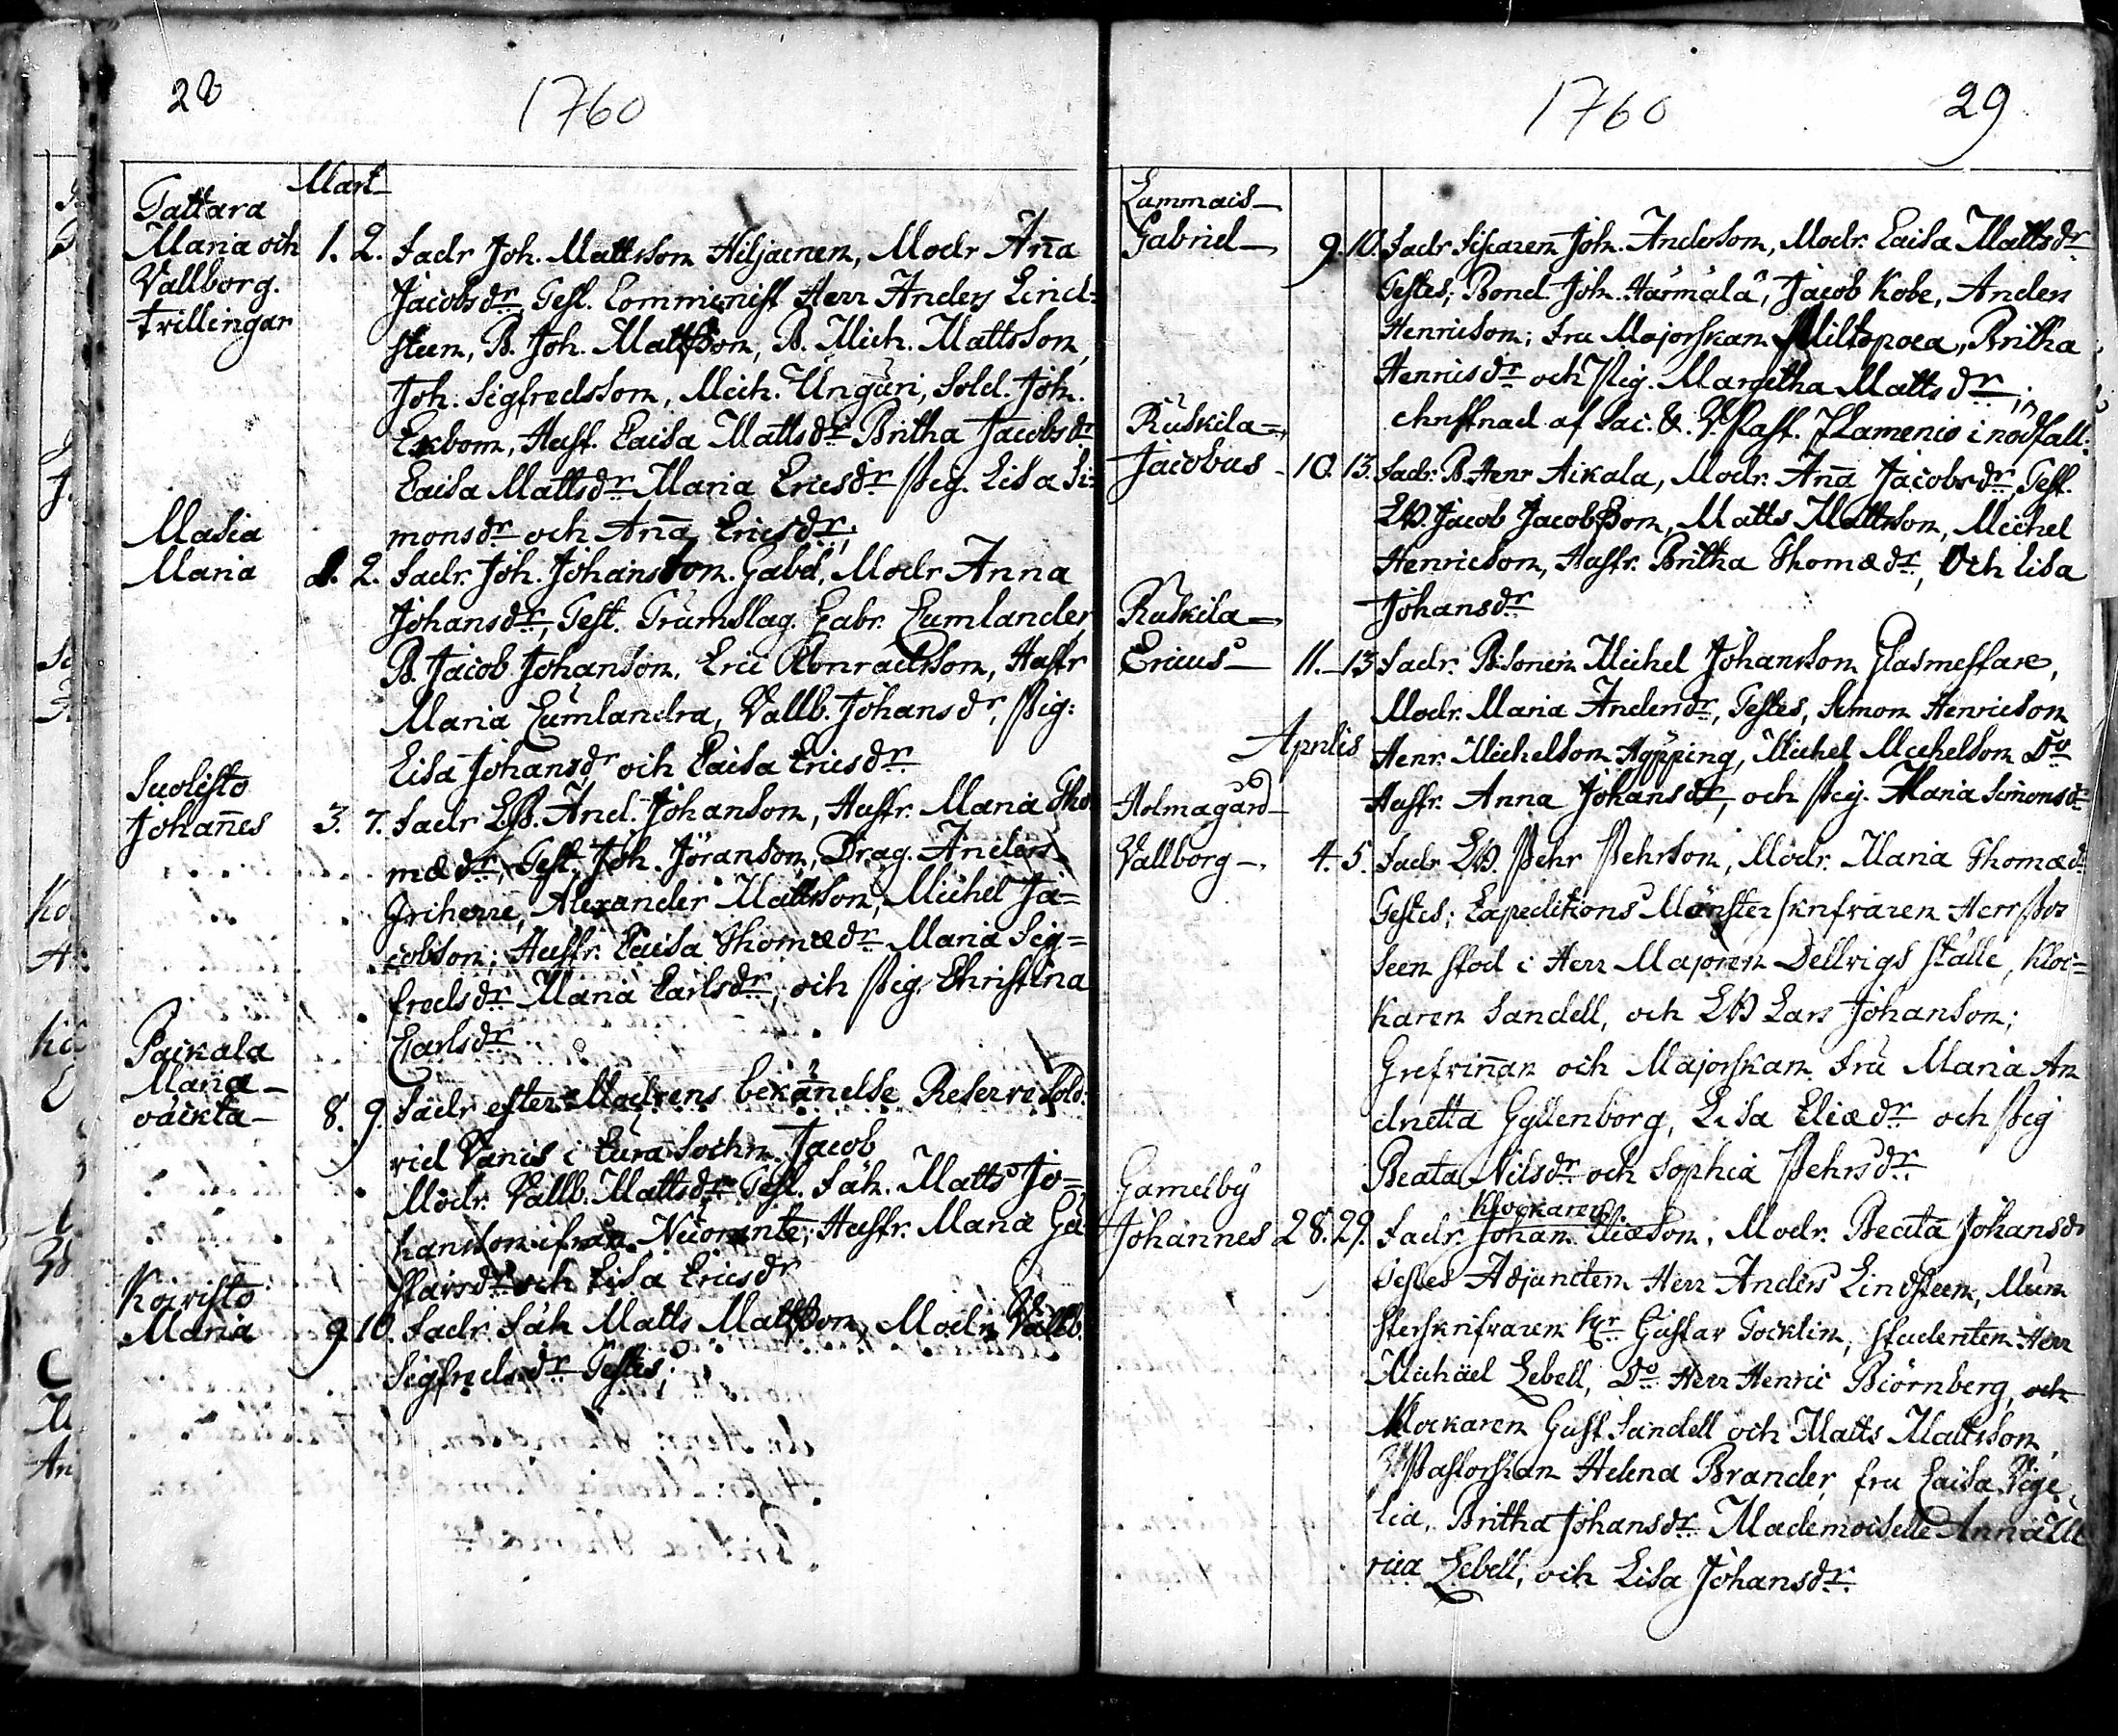 28
1760
Mart
Tattara
Maria och 1. 2. Fadr Joh. Mattsson Hiljainen, Modr Aña
Vallborg. Jacobsdr, Test. Comminist Herr Anders Lind-
Tvillingar steen, B. Joh. Mattsson, B. Mich. Mattsson,
Joh. Sigfredsson, Mich. Unguri, Sold. Joh.
Ekbom, Hust. Caisa Mattsdr Britha Jacobsdr
Caisa Mattsdr Maria Ericsdr Pig. Lisa Si-
Masia monsdr och Aña Ericsdr;
Maria 1. 2. Fadr. Joh. Johansson Gabel, Modr Anna
Johansdr, Test. Trumslag. Gabr. Cumlander
B. Jacob Johanson, Eric Conradsson, Hustr
Maria Cumlandra, Vallb. Johansdr, Pig:
Lisa Johansdr och Caisa Ericsdr
Suolisto
Johañes 3. 7. Fadr LB. And. Johanson, Hustr. Maria Tho
mædr, Test. Joh. Jöranson, Drag. Anders
Griherre, Alexander Mattsson, Michel Ja-
cobson; Hustr. Caisa Thomædr Maria Sig-
fredsdr Maria Carlsdr, och Pig. Christina
Carlsdr
Paikala
Maria
oäckta 8. 9. Fadr efter Modrens bekäñelse Reserve Sold.
vid Vanis i Eura Sochn Jacob
Modr. Vallb. Mattsdr Test. Fäh. Matts Jo-
hansson ifrån Nuorante, Hustr. Maria Gu
stavsdr och Lisa Ericsdr
Koivisto
Maria 9. 10. Fadr. Fäh Matts Mattsson, Modr Vallb.
Sigfredsdr Testes;
1760
29
Lammais
Gabriel 9. 10. Fadr Fiscaren Joh. Anderson, Modr. Caisa Mattsdr
Testes; Bond. Joh. Härmälä, Jacob Kobe, Anders
Henricson; Fru Majorskan Miltopoea, Britha
Henricsdr och Pig. Margetha Mattsdr;
christnad af Sac. & V. Past. Flamenio i nödfall.
Ruskila
Jacobus 10. 13. Fadr. B. Henr Aikala, Modr. Aña Jacobsdr, Test.
LB. Jacob Jacobsson, Matts Mattsson, Michel
Henricson, Hustr. Britha Thomædr, Och Lisa
Johansdr
Ruskila
Ericus 11. 13 Fadr. B. Sonen Michel Johansson Glasmestare,
Modr. Maria Andersdr, Testes, Simon Henricson
Henr. Michelson Hopping, Michel Michelson Do
Hustr. Anna Johansdr, och Pig. Maria Simonsdr
Aprilis
Holmagård
Vallborg 4. 5. Fadr LB. Pehr Pehrson, Modr. Maria Thomædr
Testes; Expeditions Mönster skrifvaren Herr
seen stod i Herr Majoren Dellvigs ställe, Kloc-
karen Sandell, och LB Lars Johanson;
Grefviñan och Majorskan Fru Maria An
dnetta Gyllenborg, Lisa Eliædr och Pig
Beata Nilsdr och Sophia Pehrsdr.
Gamelby
Klockaren
Johannes 28. 29. Fadr. Johan Eliæson, Modr. Beata Johansdr
Testes Adjuncten Herr Anders Lindsteen, Mun
sterskrifvaren Hr Gustav Tocklin, studenten Herr
Michäel Lebell, Do Herr Henric Biörnberg, och
Klockaren Gust. Sandell och Matts Mattsson,
V. Pastorskan Helena Brander, fru Caisa Vige
lia, Britha Johansdr. Mademoiselle Anna Ul
rica Lebell, och Lisa Johansdr.